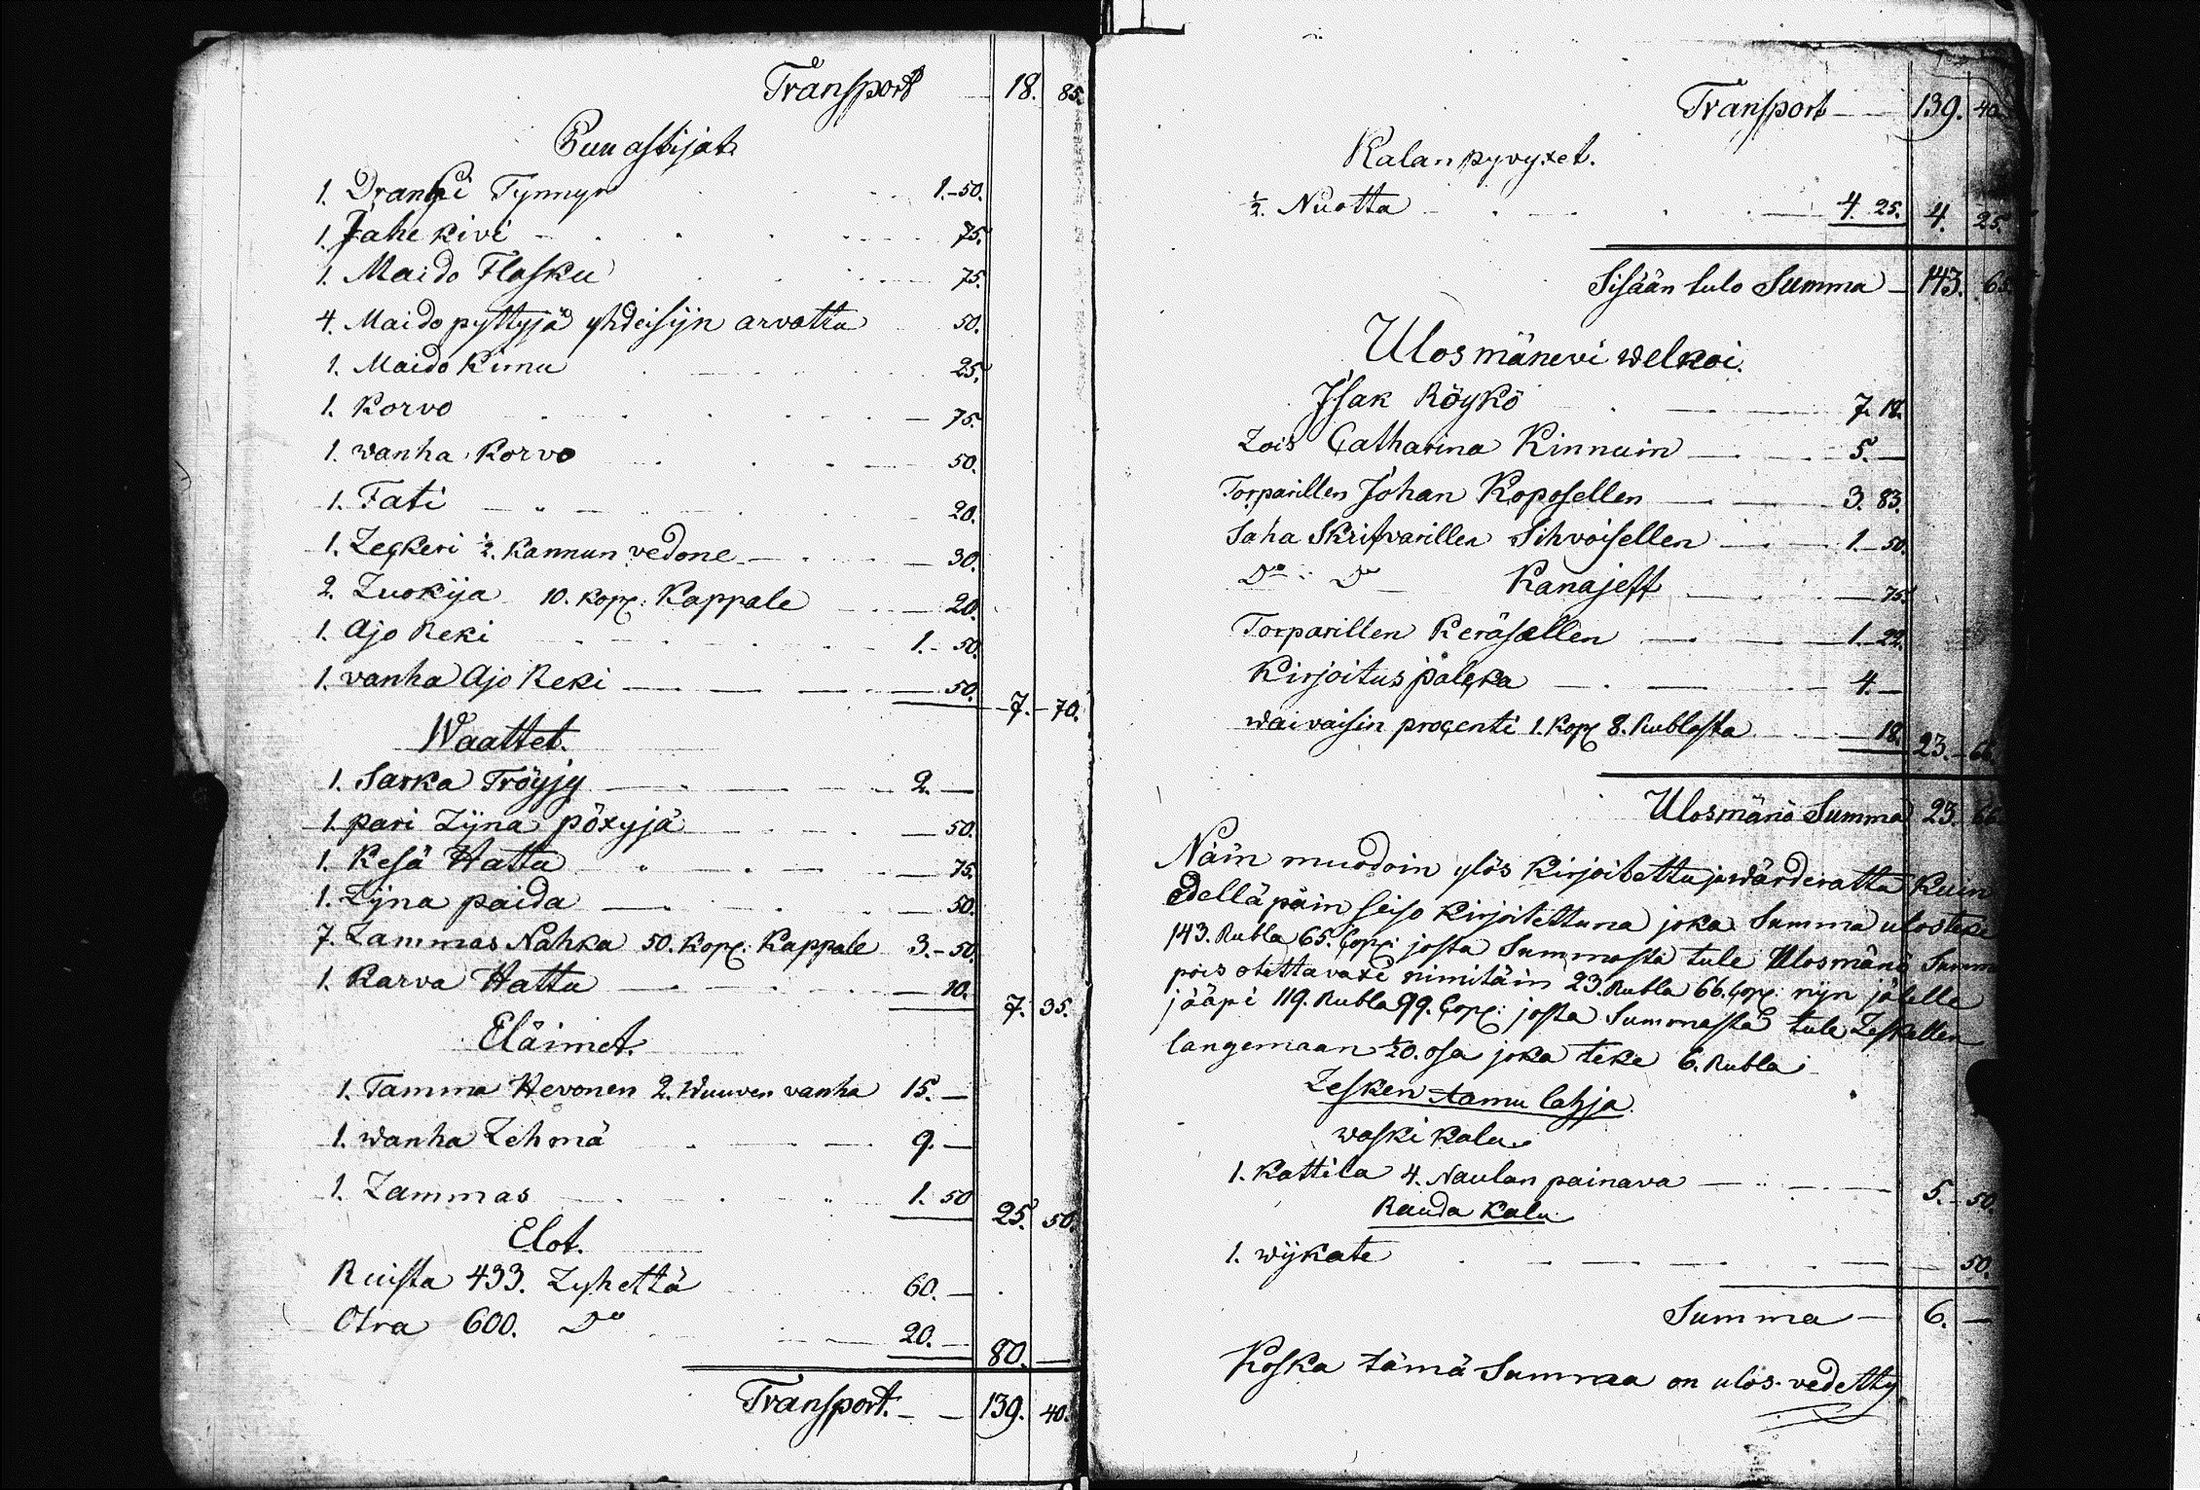 Transport 18. 85.
Puu astijat.
1. Dranki Tynnyr 1.-50.
1. Tahe kivi 75.
1. Maido Flasku 75.
4. Maido pyttyjä yhdeisijn arvattu 50.
1. Maido Kirnu 25.
1. Korvo 75.
1. wanha Korvo 50.
1. Fati 20.
1. Leçkeri ½. Kannun vedone 30.
2. Luokija 10. Kopç: Kappale 20.
1. Ajo Reki 1.-50.
1. vanha Ajo Reki 50. 7.-70.
Waattet.
1. Sarka Tröyjy 2.—
1. pari Lijna pöxyjä 50.
1. Kesä Hattu 75.
1. Lijna paida 50.
7. Lammas Nahka 50. Kopç: Kappale 3.-50.
1. Karva Hattu 10. 7. 35.
Eläimet.
1. Tamma Hevonen 2. Wuuven vanha 15.—
1. wanha Lehmä 9.—
1. Lammas 1. 50 25. 50.
Elot.
Ruista 433. Lyhettä 60.—
Otra 600. Do 20.— 80.—
Transport. 139. 40.
Transport 139. 40.
Kalan pyvyxet.
½. Nuotta 4. 25. 4. 25.
Sisään tulo Summa 143. 65.
Ulosmänevi welkoi.
Isak Röykö 7. 18.
Lois Catharina Kinnuin 5.—
Torparillen Johan Koposellen 3. 83.
Saha Skrifvarillen Sihvoisellen 1.-50.
Do Do Kanajeff 75.
Torparillen Keräsellen 1.-22.
Kirjoitus palçka 4.—
waivaisin proçenti 1. Kopç 8. Rublasta 18. 23.-66.
Ulosmänö Summa 23. 66.
Näin muodoin ylös Kirjoitettu ja wärderattu Kuin
edellä päin seiso Kirjoitettuna joka Summa ulosteke
143. Rubla 65. Çopç: josta Summasta tule Ulosmänö Summ
pois otettavaxi nimitäin 23. Rubla 66. Çopç: nijn jälelle
jääpi 119. Rubla 99. Çopç: josta Summasta tule Leskellen
langemaan 1/20. osa joka teke 6. Rubla
Lesken tamu lahja.
waski kalu.
1. Kattila 4. Naulan painava 5.-50.
Rauda Kalu
1. wijkate 50.
Summa 6.—
Koska tämä Summa on ulos vedetty